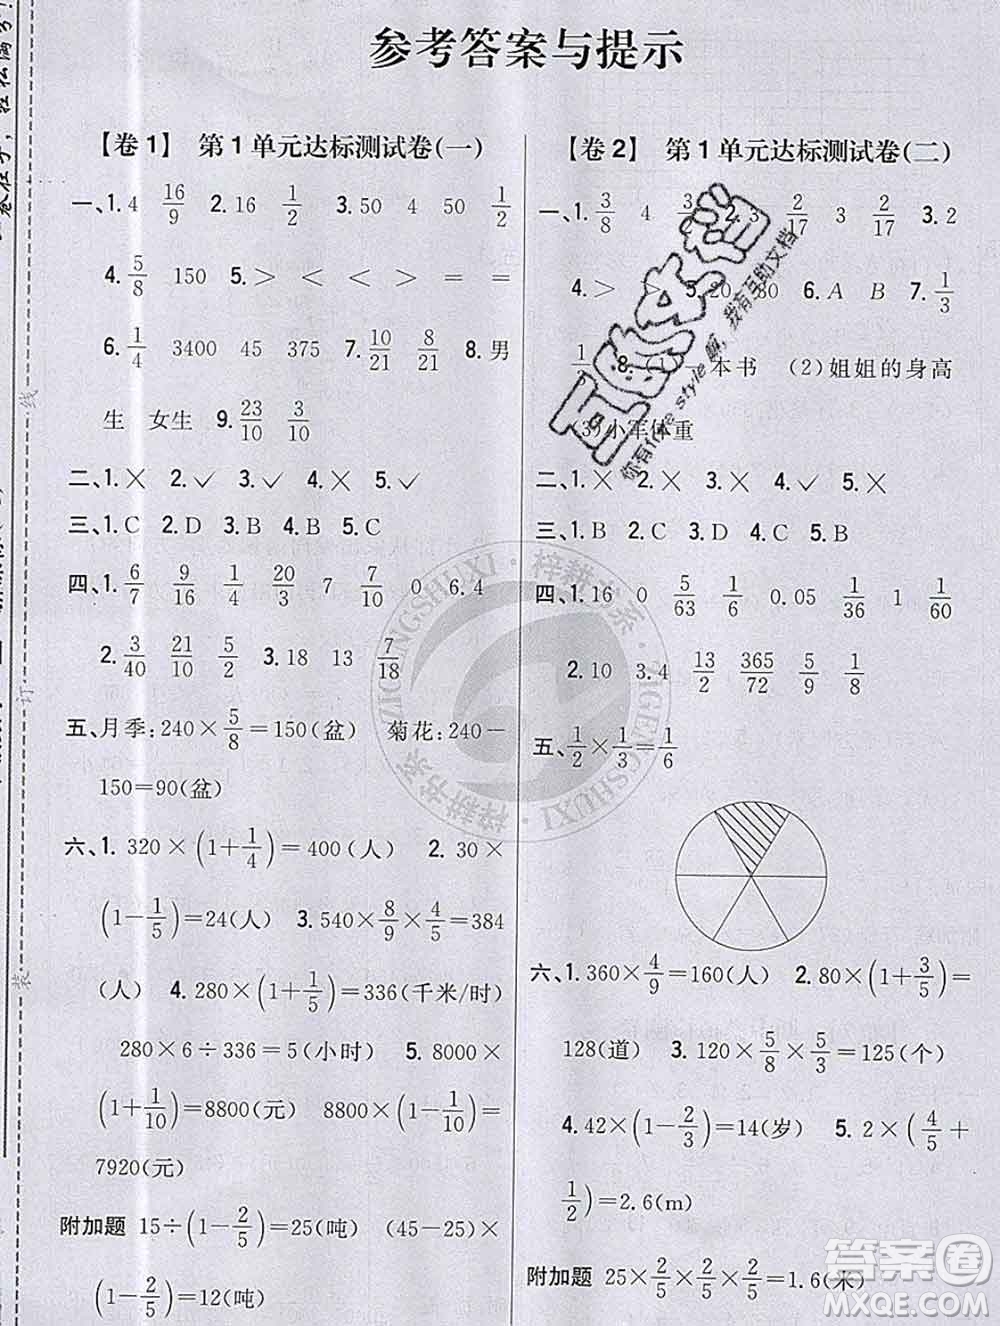 参考答案与提示
【卷1】 第1单元达标测试卷(一)
一、1. 4 16/9 2. 16 1/2 3. 50 4 50 1/2
4. 5/8 150 5. > < < > = =
6. 1/4 3400 45 375 7. 10/21 8/21 8. 男
生 女生 9. 23/10 3/10
二、1. × 2. ✓ 3. × 4. × 5. ✓
三、1. C 2. D 3. B 4. D 5. C
四、1. 6/7 9/16 1/6 20/3 7 7/10 0 6.4
2. 3/40 21/10 5/2 3. 18 13 7/18
五、月季: 240×5/8=150(盆) 菊花: 240-
150=90(盆)
六、1. 320×(1+1/4)=400(人) 2. 30×
(1-1/5)=24(人) 3. 540×8/9×4/5=384
(人) 4. 280×(1+1/5)=336(千米/时)
280×6÷336=5(小时) 5. 8000×
(1+1/10)=8800(元) 8800×(1-1/10)=
7920(元)
附加题 15÷(1-2/5)=25(吨) (45-25)×
(1-2/5)=12(吨)
【卷2】 第1单元达标测试卷(二)
一、1. 3/8 4 3/ 2. 3 2/17 3 2/17 3. 2
4. > > 5. 20 30 6. A B 7. 1/3
1/ 8. (1)一本书 (2)姐姐的身高
(3)小军体重
二、1. × 2. × 3. × 4. ✓ 5. ×
三、1. B 2. C 3. C 4. D 5. B
四、1. 16 0 5/63 1/6 0.05 1/36 1 1/60
2. 10 3.4 13/2 365/72 5/9 1/8
五、1/2×1/3=1/6
六、1. 360×4/9=160(人) 2. 80×(1+3/5)=
128(道) 3. 120×5/8×5/3=125(个)
4. 42×(1-2/3)=14(岁) 5. 2×(4/5+
1/2)=2.6(m)
附加题 25×2/5×2/5×2/5=1.6(米)
线
订
装
梓耕书系·ZIGENGSHUXI·梓耕书系·ZIGENGSHUXI
我有互助文档
你有free style嘛,
答案圈
MXQE.COM